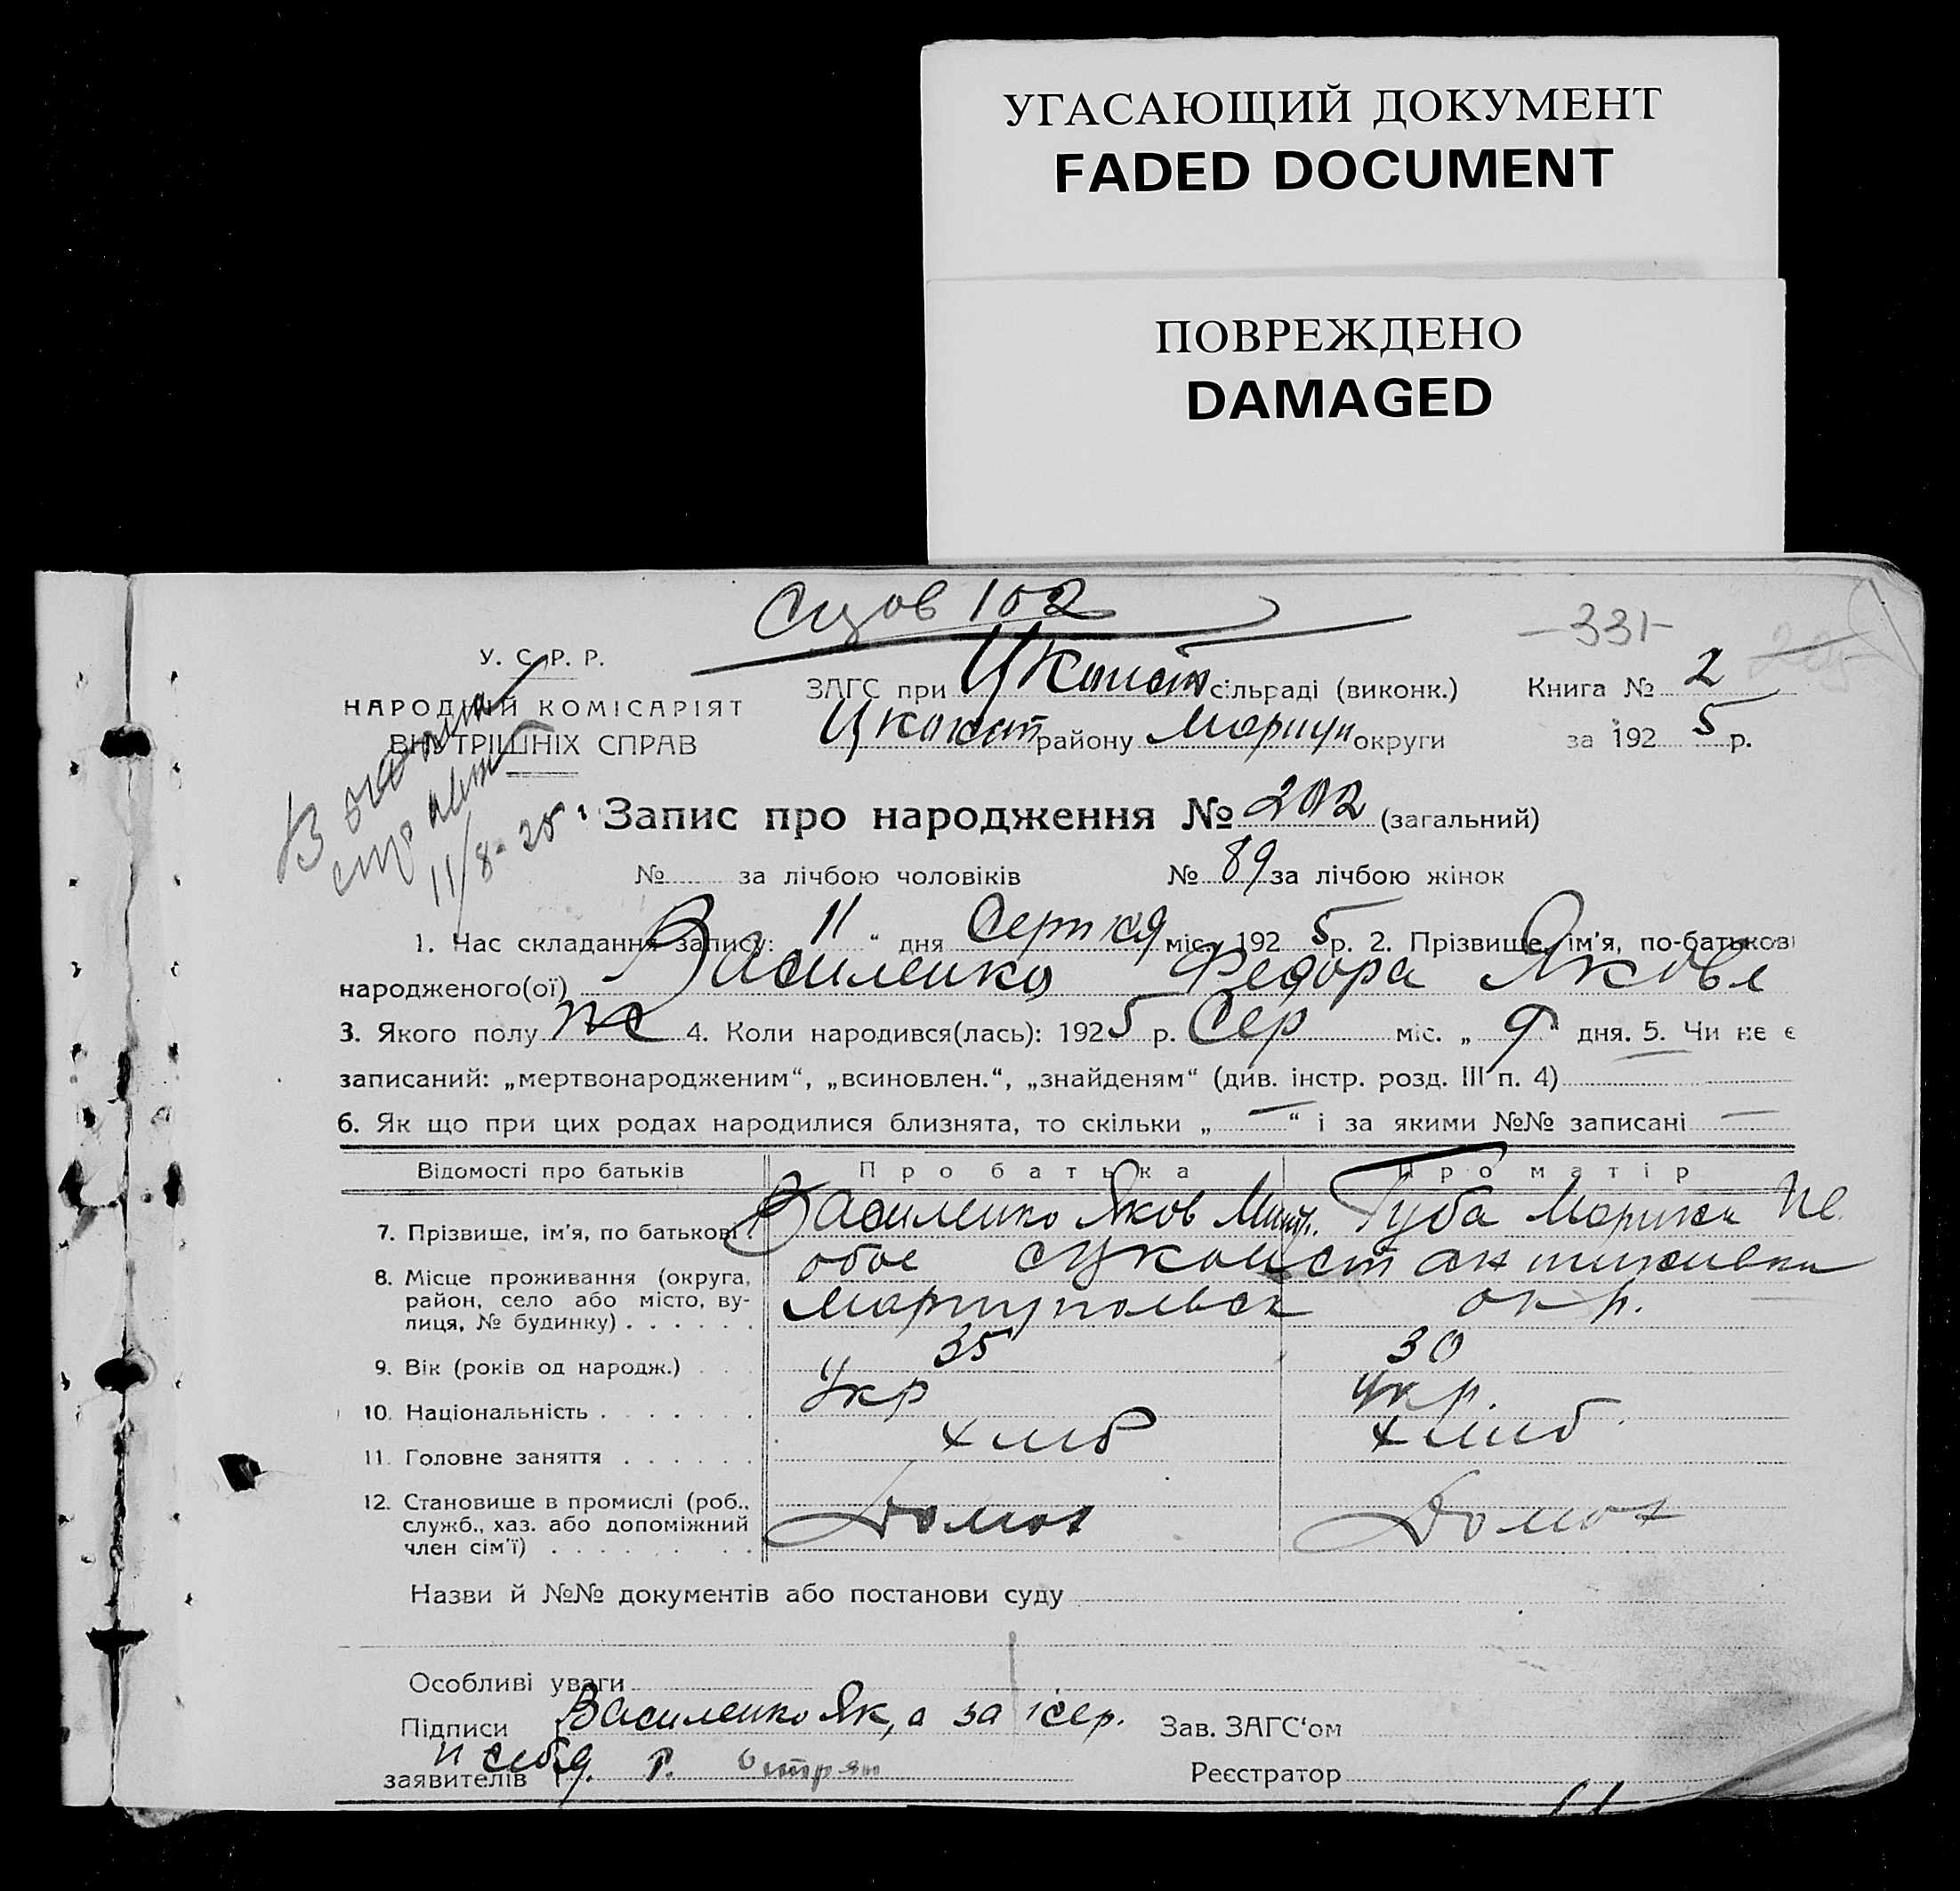 УГАСАЮЩИЙ ДОКУМЕНТ
FADED DOCUMENT
ПОВРЕЖДЕНО
DAMAGED
102
-331-
У. С. Р. Р.
НАРОДНІЙ КОМІСАРІЯТ
ВНУТРІШНІХ СПРАВ
11/8-25
ЗАГС при Цконст сільраді (виконк.) Книга № 2
Цконст району Мариуп округи за 1925 р.
Запис про народження № 202 (загальний)
№ за лічбою чоловіків № 89 за лічбою жінок
1. Час складання запису: 11 “ дня Серпня міс. 1925 р. 2. Прізвище, ім'я, по-батькові
народженого(ої) Василенко Федора Яковл
3. Якого полу ж 4. Коли народився(лась): 1925 р. Сер міс. „ 9 дня. 5. Чи не є
записаний: „мертвонародженим“, „всиновлен.“, „знайденям“ (див. інстр. розд. III п. 4)
6. Як що при цих родах народилися близнята, то скільки „ — “ і за якими №№ записані —
Відомості про батьків Про батька Про матір
7. Прізвище, ім'я, по батькові Василенко Яков Губа Марина
8. Місце проживання (округа, обое
район, село або місто, ву- Мариупольск окр.
лиця, № будинку)
9. Вік (років од народж.) 35 30
10. Національність Укр Укр.
11. Головне заняття хліб хліб
12. Становище в промислі (роб., Домох Домох
служб., хаз. або допоміжний
член сім'ї)
Назви й №№ документів або постанови суду
Особливі уваги
Підписи Василенко Як, а за Зав. ЗАГС'ом
заявителів Реєстратор